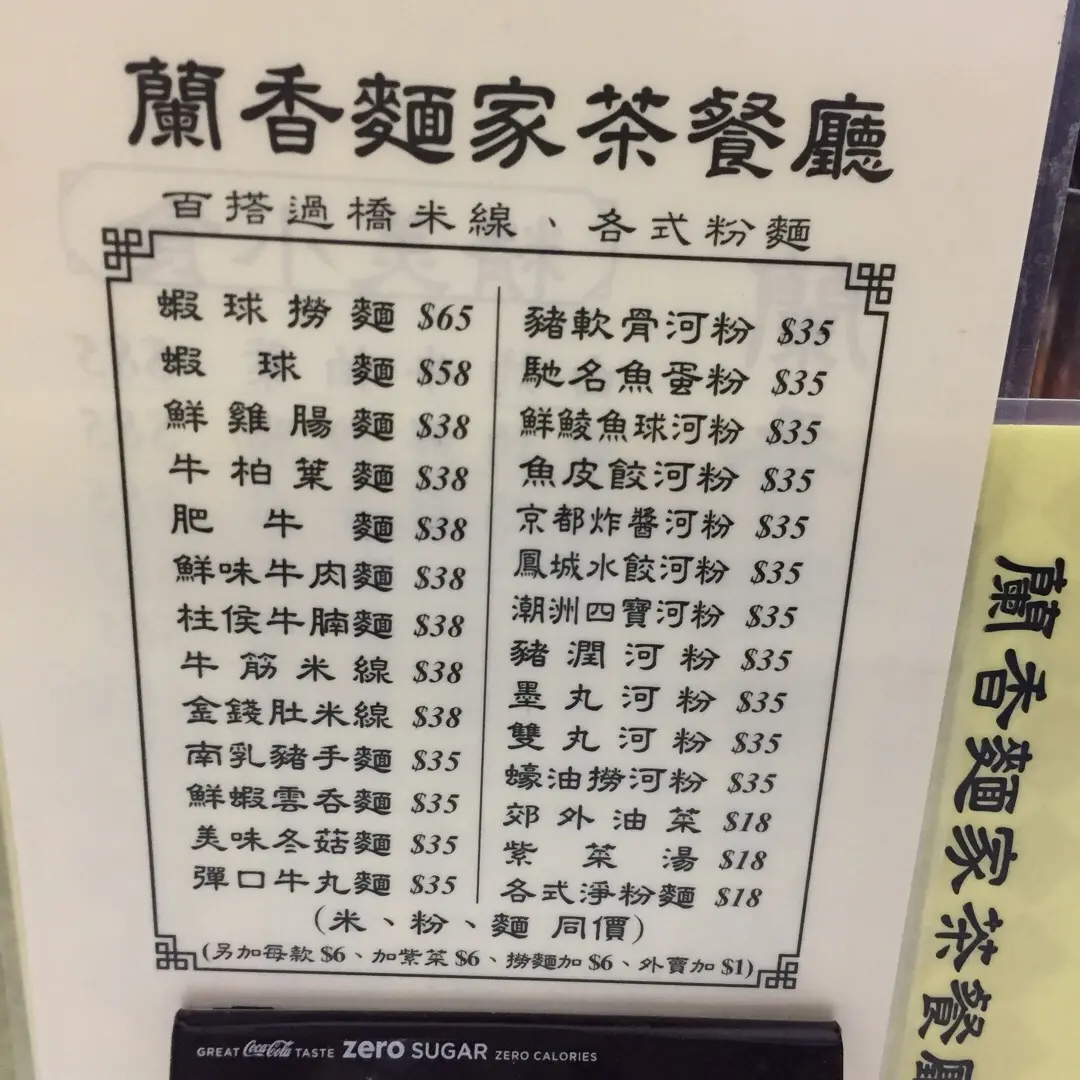 蘭香麵家茶餐廳
百搭過橋米線、各式粉麵
蝦球撈麵 $65
蝦球麵 $58
鮮雞腸麵 $38
牛柏葉麵 $38
肥牛麵 $38
鮮味牛肉麵 $38
柱侯牛腩麵 $38
牛筋米線 $38
金錢肚米線 $38
南乳豬手麵 $35
鮮蝦雲吞麵 $35
美味冬菇麵 $35
彈口牛丸麵 $35
豬軟骨河粉 $35
馳名魚蛋粉 $35
鮮鯪魚球河粉 $35
魚皮餃河粉 $35
京都炸醬河粉 $35
鳳城水餃河粉 $35
潮洲四寶河粉 $35
豬潤河粉 $35
墨丸河粉 $35
雙丸河粉 $35
蠔油撈河粉 $35
郊外油菜 $18
紫菜湯 $18
各式淨粉麵 $18
(米、粉、麵 同價)
(另加每款 $6、加紫菜 $6、撈麵加 $6、外賣加 $1)
GREAT Coca-Cola TASTE zero SUGAR ZERO CALORIES
蘭香麵家茶餐廳